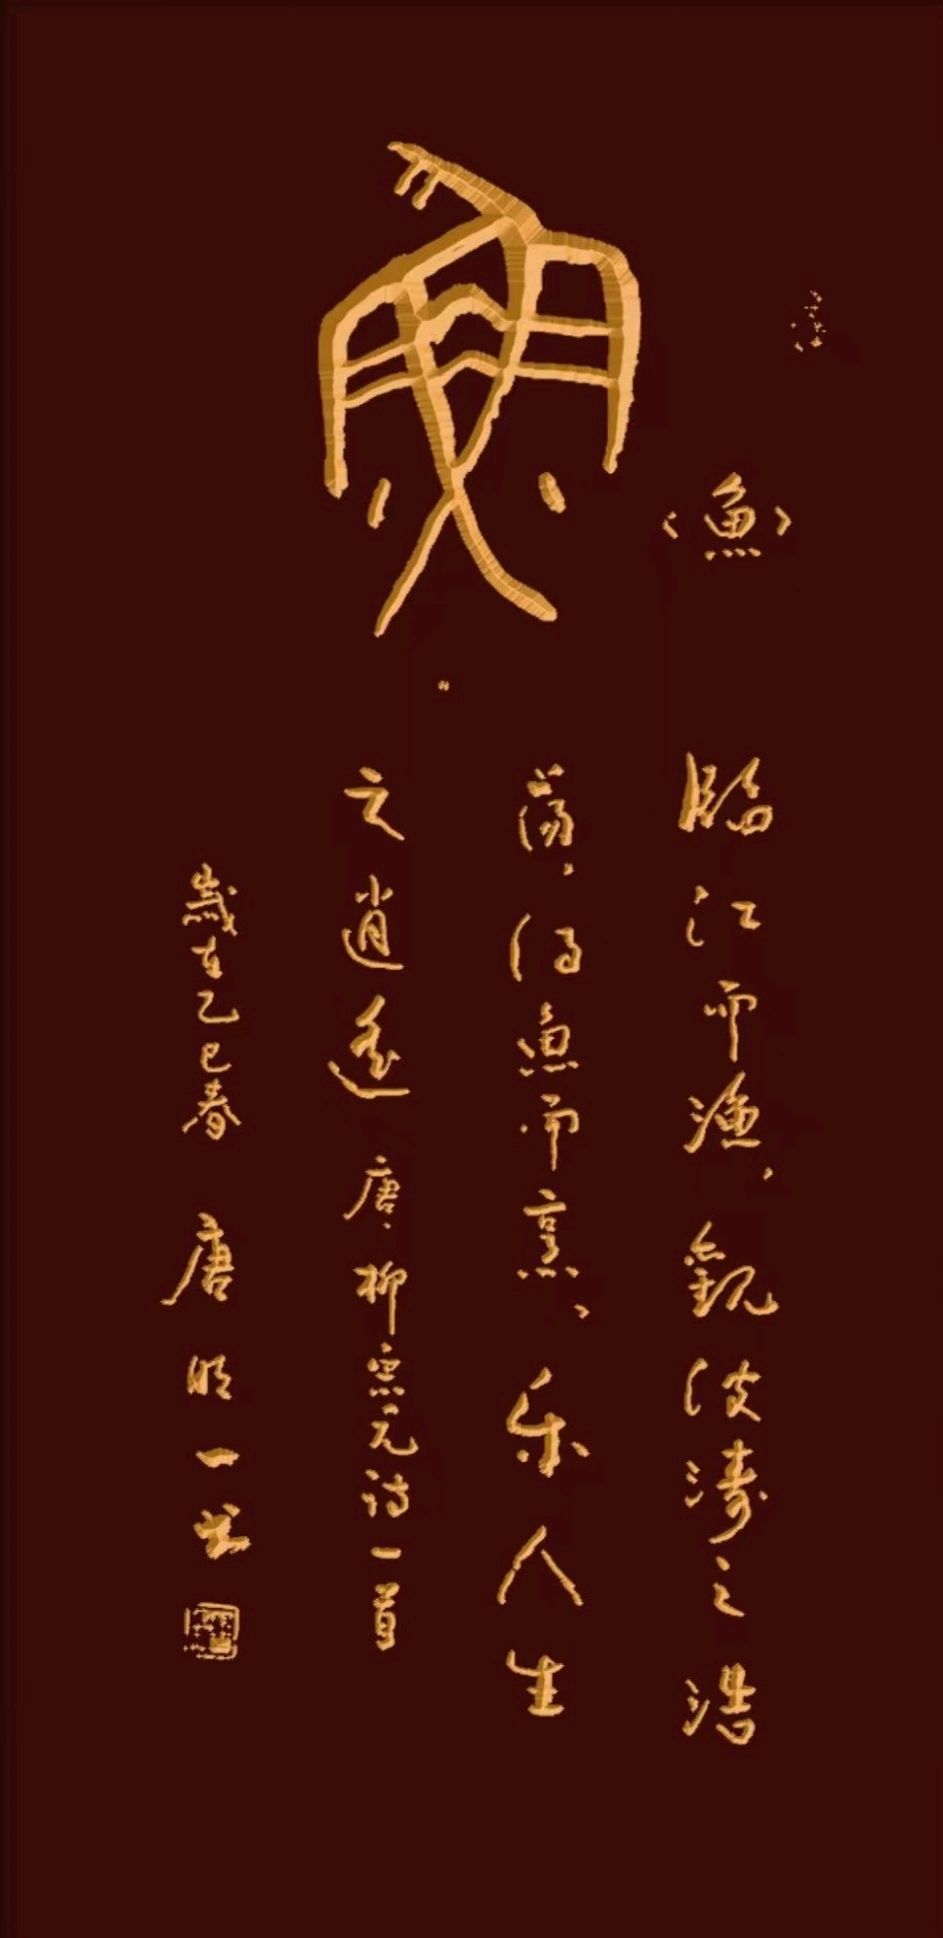 魚
〈魚〉
臨江而漁，觀波濤之浩
蕩，得魚而烹、乐人生
之逍遥 唐·柳宗元诗一首
歲在乙巳春 唐明一书